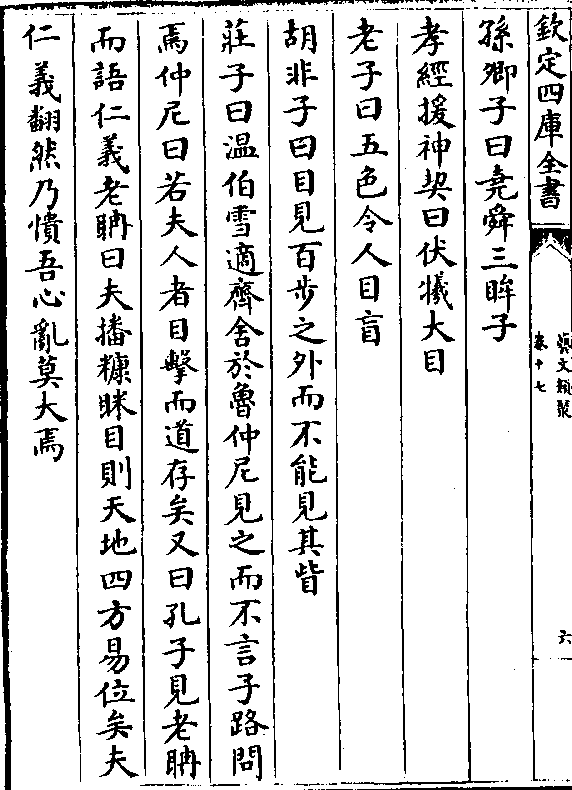 欽定四庫全書
藝文類聚
卷十七
六
孫卿子曰堯舜三眸子
孝經援神契曰伏犧大目
老子曰五色令人目盲
胡非子曰目見百步之外而不能見其眥
莊子曰温伯雪適齊舍於魯仲尼見之而不言子路問
焉仲尼曰若夫人者目擊而道存矣又曰孔子見老聃
而語仁義老聃曰夫播糠眯目則天地四方易位矣夫
仁義翻然乃憒吾心亂莫大焉